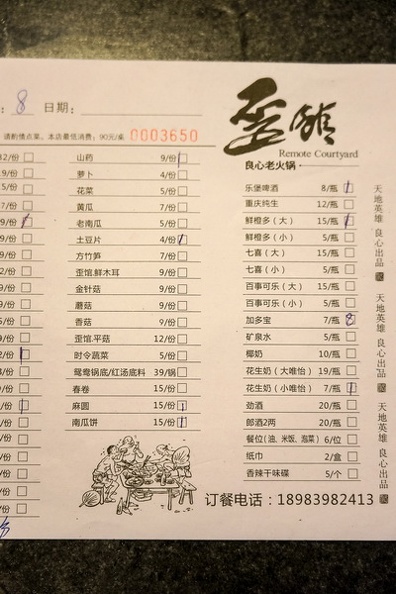 : 8 日期:
请酌情点菜、本店最低消费: 90元/桌 0003650
歪馆
Remote Courtyard
良心老火锅
12/份
15/份
5/份
9/份
9/份
山药 9/份
萝卜 4/份
花菜 5/份
黄瓜 7/份
老南瓜 5/份
土豆片 4/份
方竹笋 7/份
歪馆.鲜木耳 9/份
金针菇 9/份
蘑菇 9/份
香菇 9/份
歪馆.平菇 12/份
时令蔬菜 5/份
鸳鸯锅底/红汤底料 39/锅
春卷 15/份
麻圆 15/份
南瓜饼 15/份
乐堡啤酒 8/瓶
重庆纯生 12/瓶
鲜橙多（大） 15/瓶
鲜橙多（小） 5/瓶
七喜（大） 15/瓶
七喜（小） 5/瓶
百事可乐（大） 15/瓶
百事可乐（小） 5/瓶
加多宝 7/瓶 8
矿泉水 5/瓶
椰奶 10/瓶
花生奶（大唯怡） 19/瓶
花生奶（小唯怡） 7/瓶
劲酒 20/瓶
郎酒2两 20/瓶
餐位(油、米饭、泡菜) 6/位
纸巾 2/盒
香辣干味碟 5/个
天地英雄 良心出品
天地英雄 良心出品
天地英雄 良心出品
订餐电话：18983982413